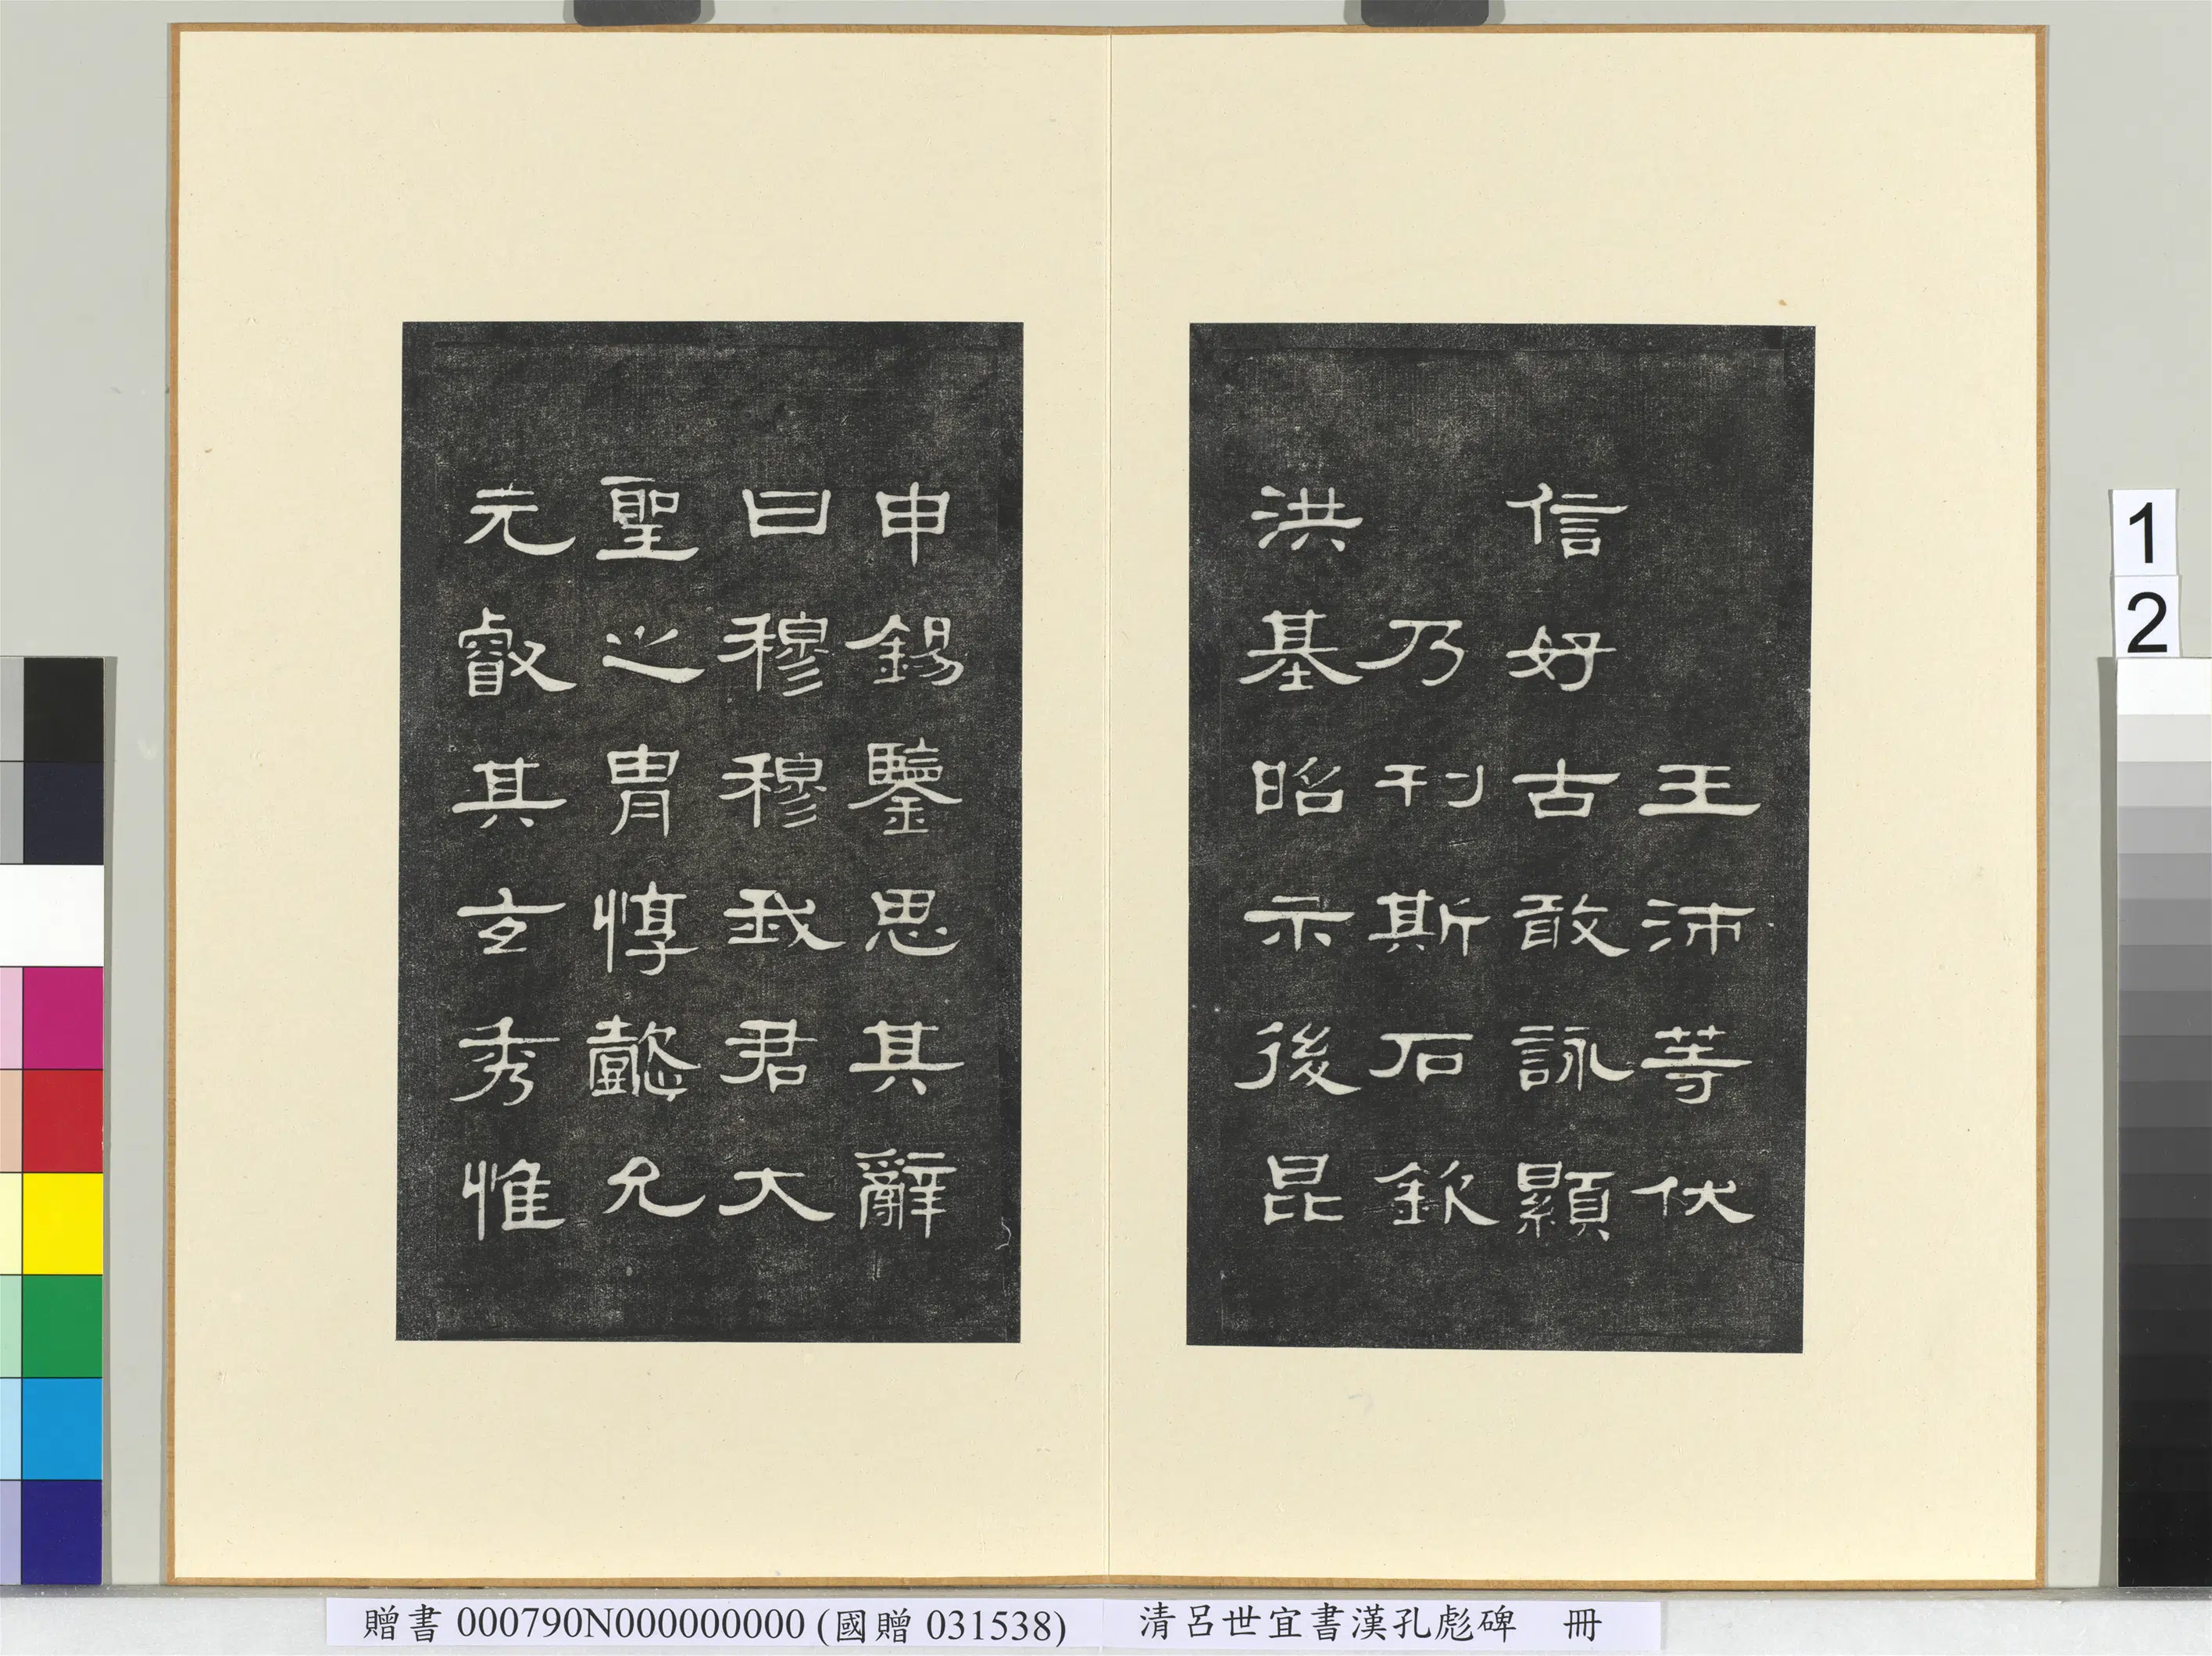 王沛等伏
信好古敢詠顯
乃刊斯石欽
洪基昭示後昆
申錫鑒思其辭
曰穆穆我君大
聖之胄惇懿允
元叡其玄秀惟
1
2
贈書 000790N000000000 (國贈 031538)
清呂世宜書漢孔彪碑 冊